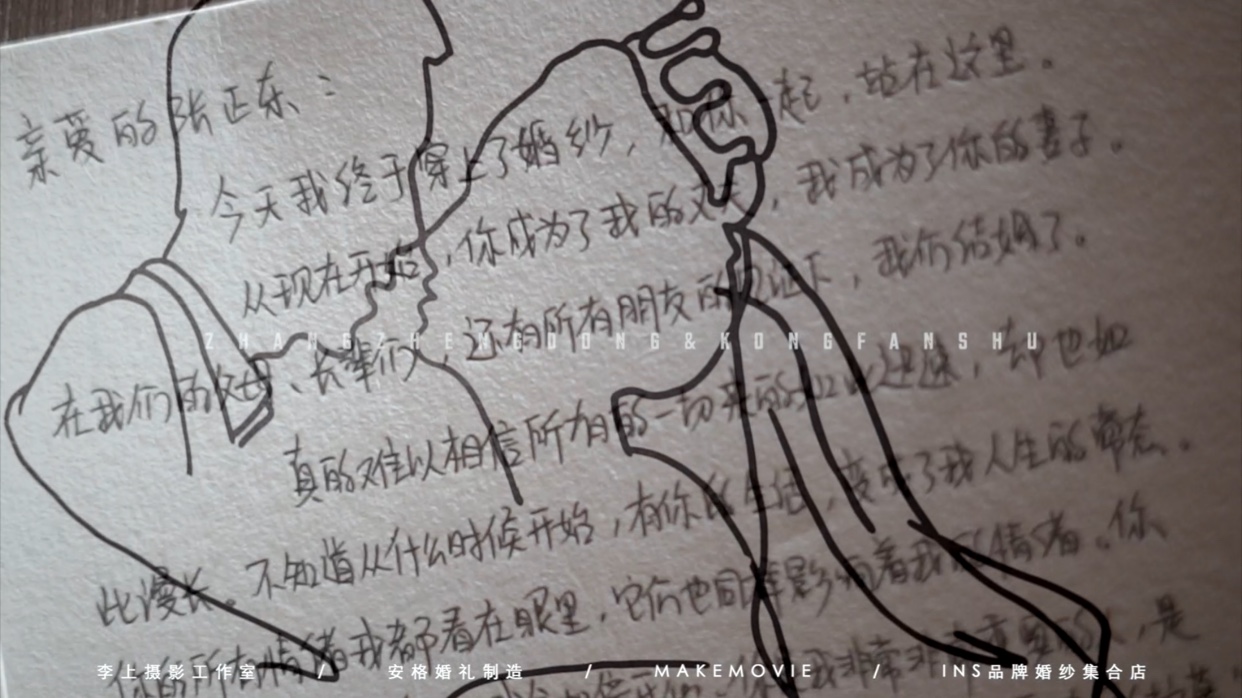 亲爱的张正东：
今天我终于穿上了婚纱，和你一起，站在这里。
从现在开始，你成为了我的丈夫，我成为了你的妻子。
在我们的父母、长辈们，还有所有朋友的见证下，我们结婚了。
ZHANGZHENGDONG&KONGFANSHU
真的难以相信所有的一切来的如此迅速，却也如
此漫长。不知道从什么时候开始，有你的生活，变成了我人生的常态。
你的所有情绪我都看在眼里，它们也同样影响着我的情绪。你
是
李上摄影工作室 / 安格婚礼制造 / MAKEMOVIE / INS品牌婚纱集合店